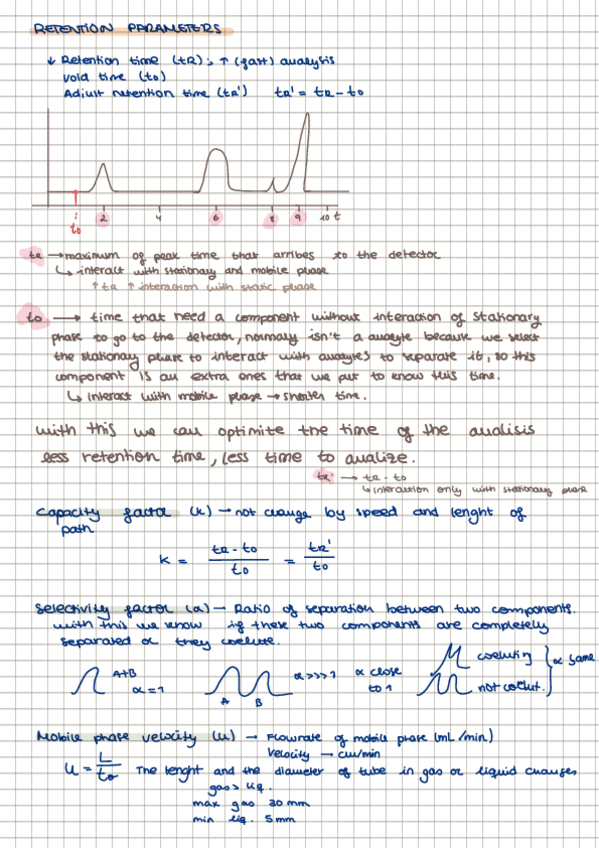 RETENTION PARAMETERS
↓ Retention time (tR) ; ↑ (fast) analysis
Void time (to)
Adjust retention time (tR') tR' = tR - to
to 2 4 6 8 9 10 t
tR → maximum of peak time that arribes to the detector
↳ interact with stationary and mobile phase
↑ tR ↑ interaction with static phase
to → time that need a component without interaction of stationary
phase to go to the detector, normaly isn't a analyte because we select
the stationay phase to interact with analytes to separate it, so this
component is an extra ones that we put to know this time.
↳ interact with mobile phase → shorter time.
with this we can optimite the time of the analisis
less retention time, less time to analize.
tR' → tR - to
↳ interaction only with stationary phase
Capacity factor (k) → not change by speed and lenght of
path
k = tR - to / to = tR' / to
Selectivity factor (α) → Ratio of separation between two components.
with this we know if these two components are completely
separated or they coelute.
A+B α = 1
A B α >>> 1
α close to 1
coeluting
not coelut.
α same
Mobile phase velocity (u) → Flowrate of mobile phase (mL/min)
Velocity → cm/min
u = L / to The lenght and the diameter of tube in gas or liquid changes
gas > liq.
max gas 30 mm
min liq. 5 mm